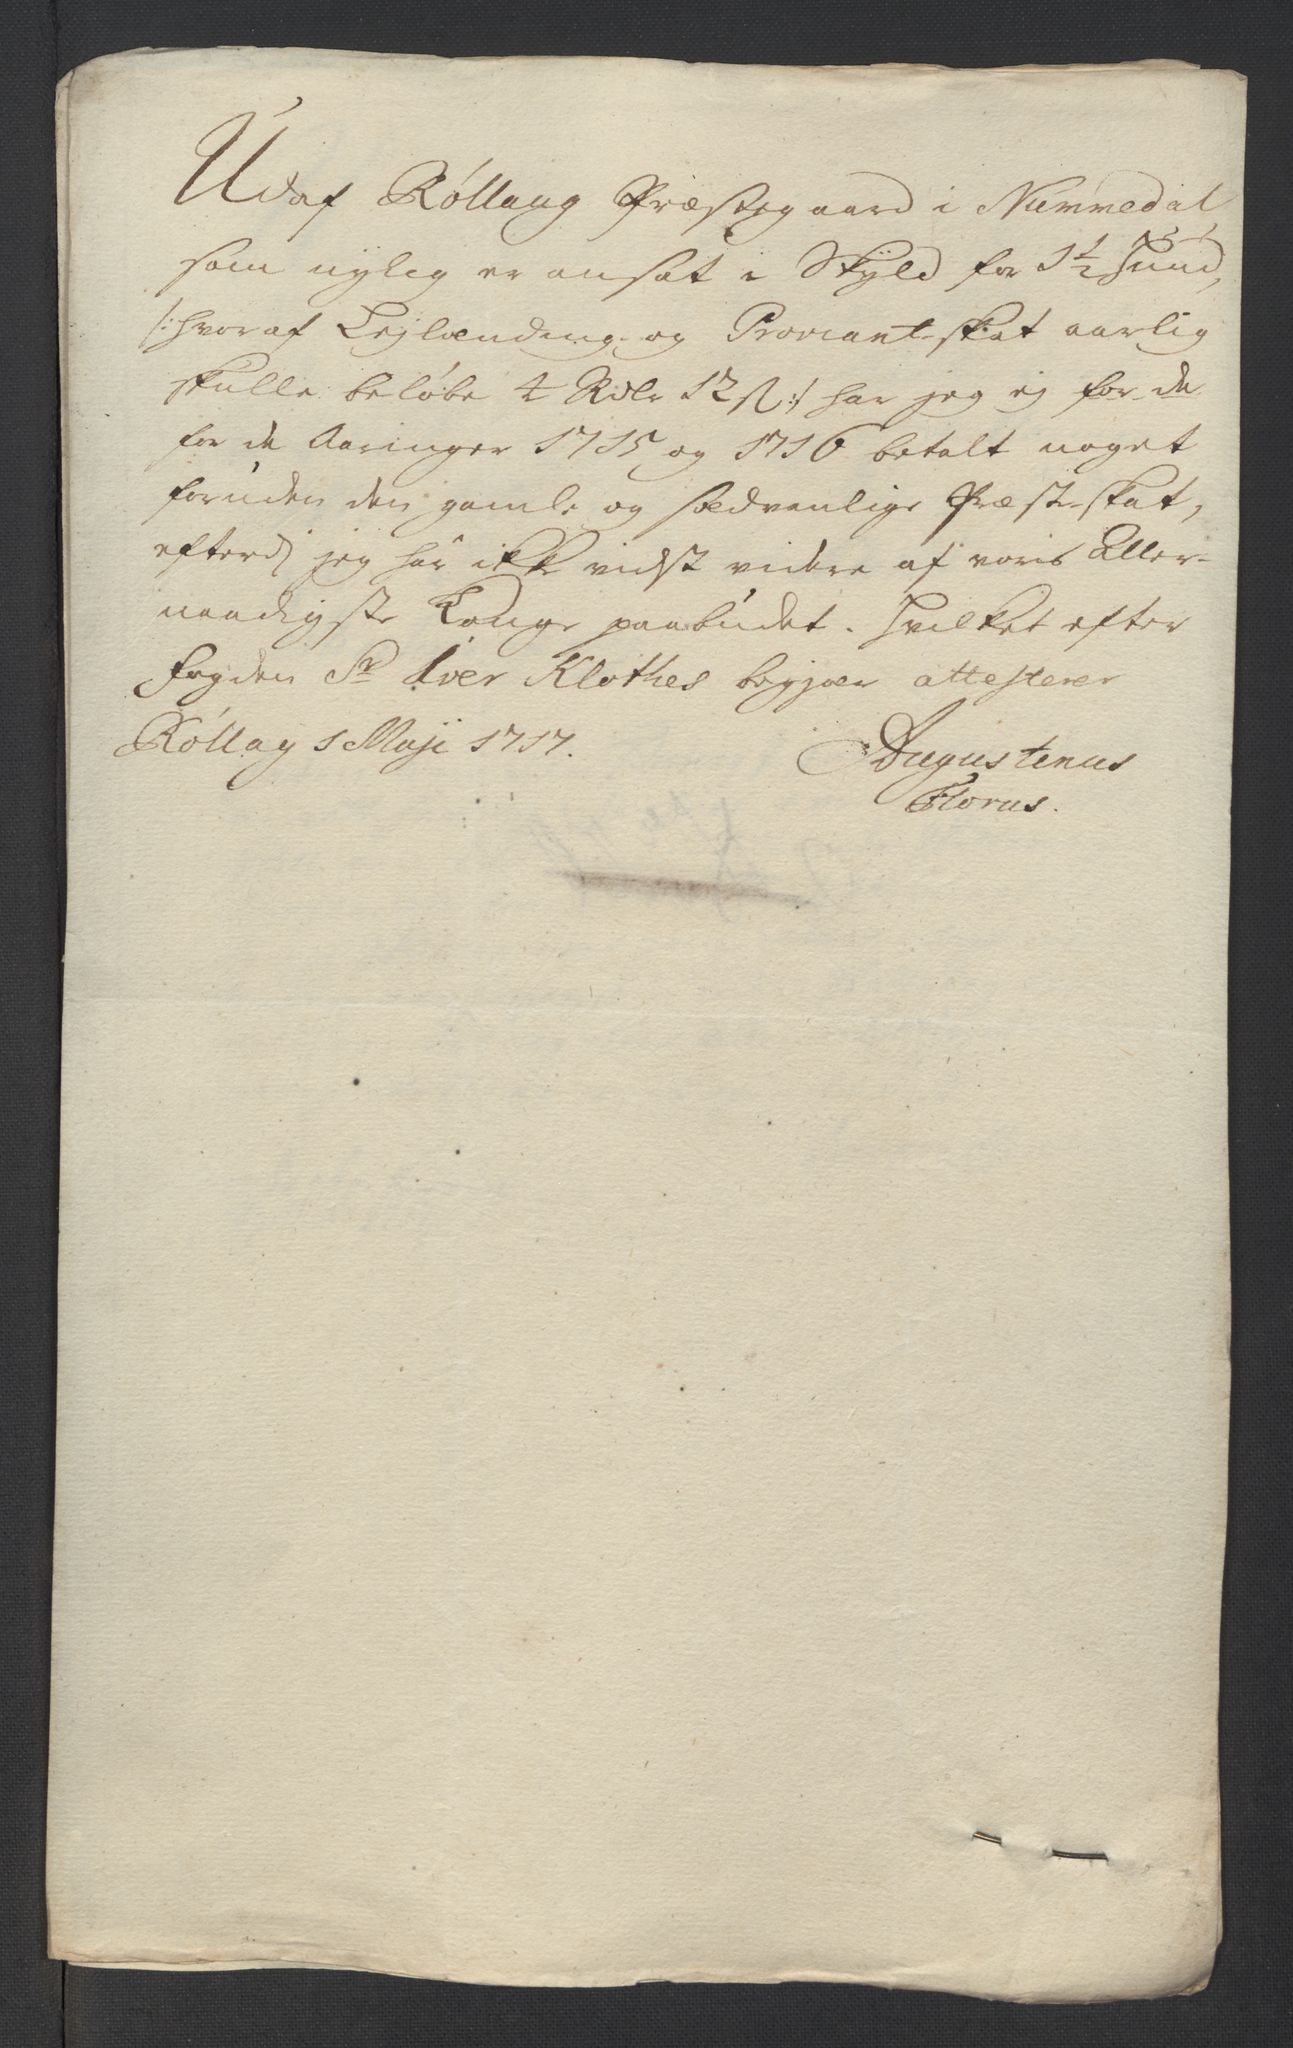 Udaf Røllaug Præstegaard i Nummedal
som nylig er ansat i Skyld for 1½ Huud,
/: hvoraf Lejlænding- og Proviant-skat aarlig
skulle beløbe 4 Rdlr 12 ß :/ har jeg ej for de
for de Aaringer 1715 og 1716 betalt noget
foruden den gamle og sædvanlige Præste-skat,
efterdj jeg har ikke vidst videre af voris Aller-
naadigste Konge paabudet. Hvilket efter
fogden Sr Iver Klothes begjær attesterer
Røllag 1 Maji 1717.
Augustinus
Florus.